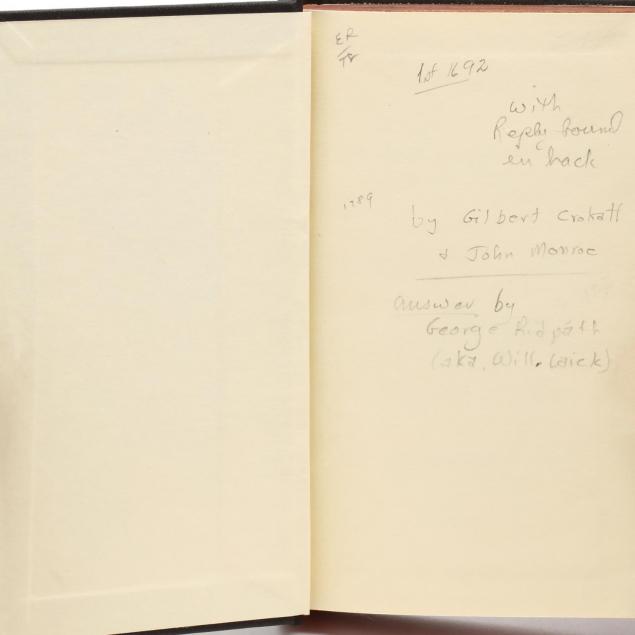 ER
TB
1st 1692
with
Reply bound
in back
1789
by Gilbert Crokatt
& John Monroe
answer by
George Ridpath
(aka, Will. Laick)